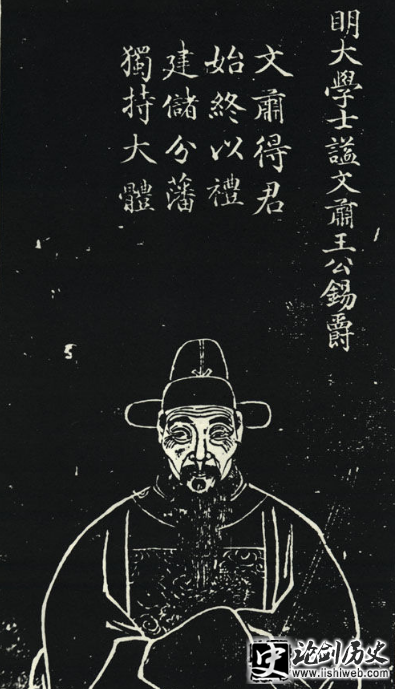 明大學士諡文肅王公錫爵
文肅得君
始終以禮
建儲分藩
獨持大體
史 论剑历史
www.lishiweb.com